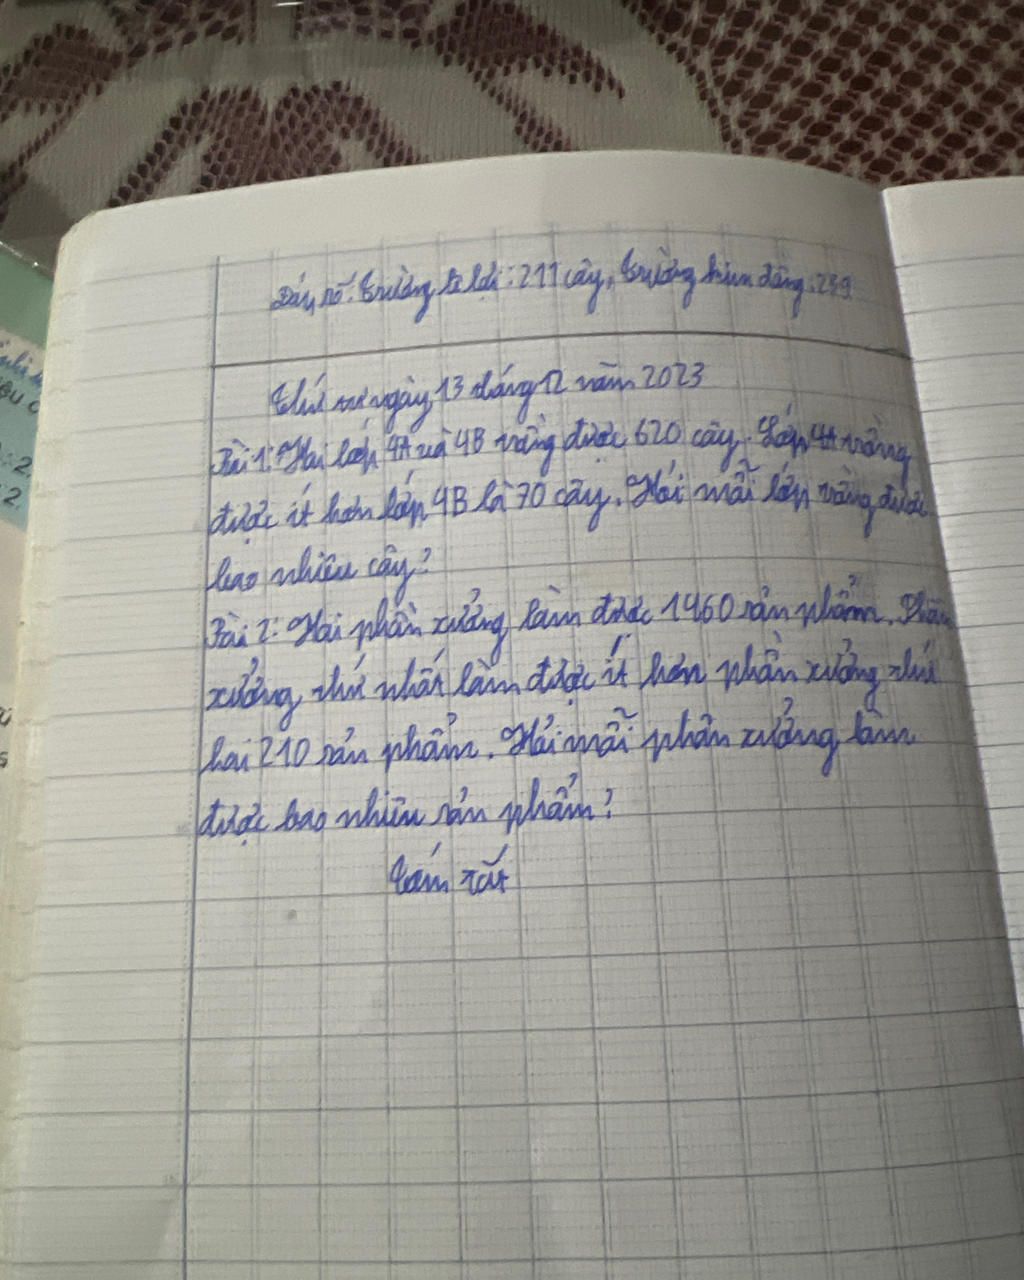 Đáp số: trường Lê Lợi: 211 cây, trường kim đồng: 259
Thứ tư ngày 13 tháng 12 năm 2023
Bài 1: Hai lớp 4A và 4B trồng được 620 cây. Lớp 4A trồng
được ít hơn lớp 4B là 70 cây. Hỏi mỗi lớp trồng được
bao nhiêu cây?
Bài 2: Hai phân xưởng làm được 1460 sản phẩm. Phân
xưởng thứ nhất làm được ít hơn phân xưởng thứ
hai 210 sản phẩm. Hỏi mỗi phân xưởng làm
được bao nhiêu sản phẩm?
tóm tắt